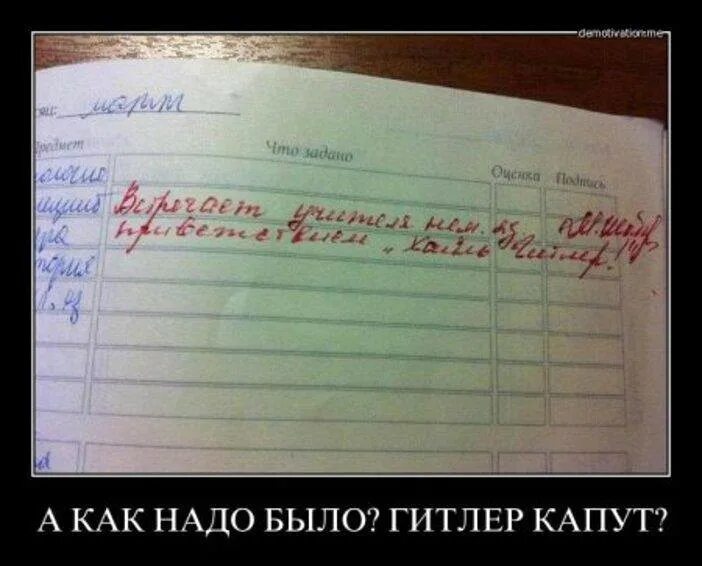 demotivation.me
март
Что задано
Оценка
Подпись
Встречает учителя нем. яз.
приветствием „Хайль Гитлер!"
А КАК НАДО БЫЛО? ГИТЛЕР КАПУТ?